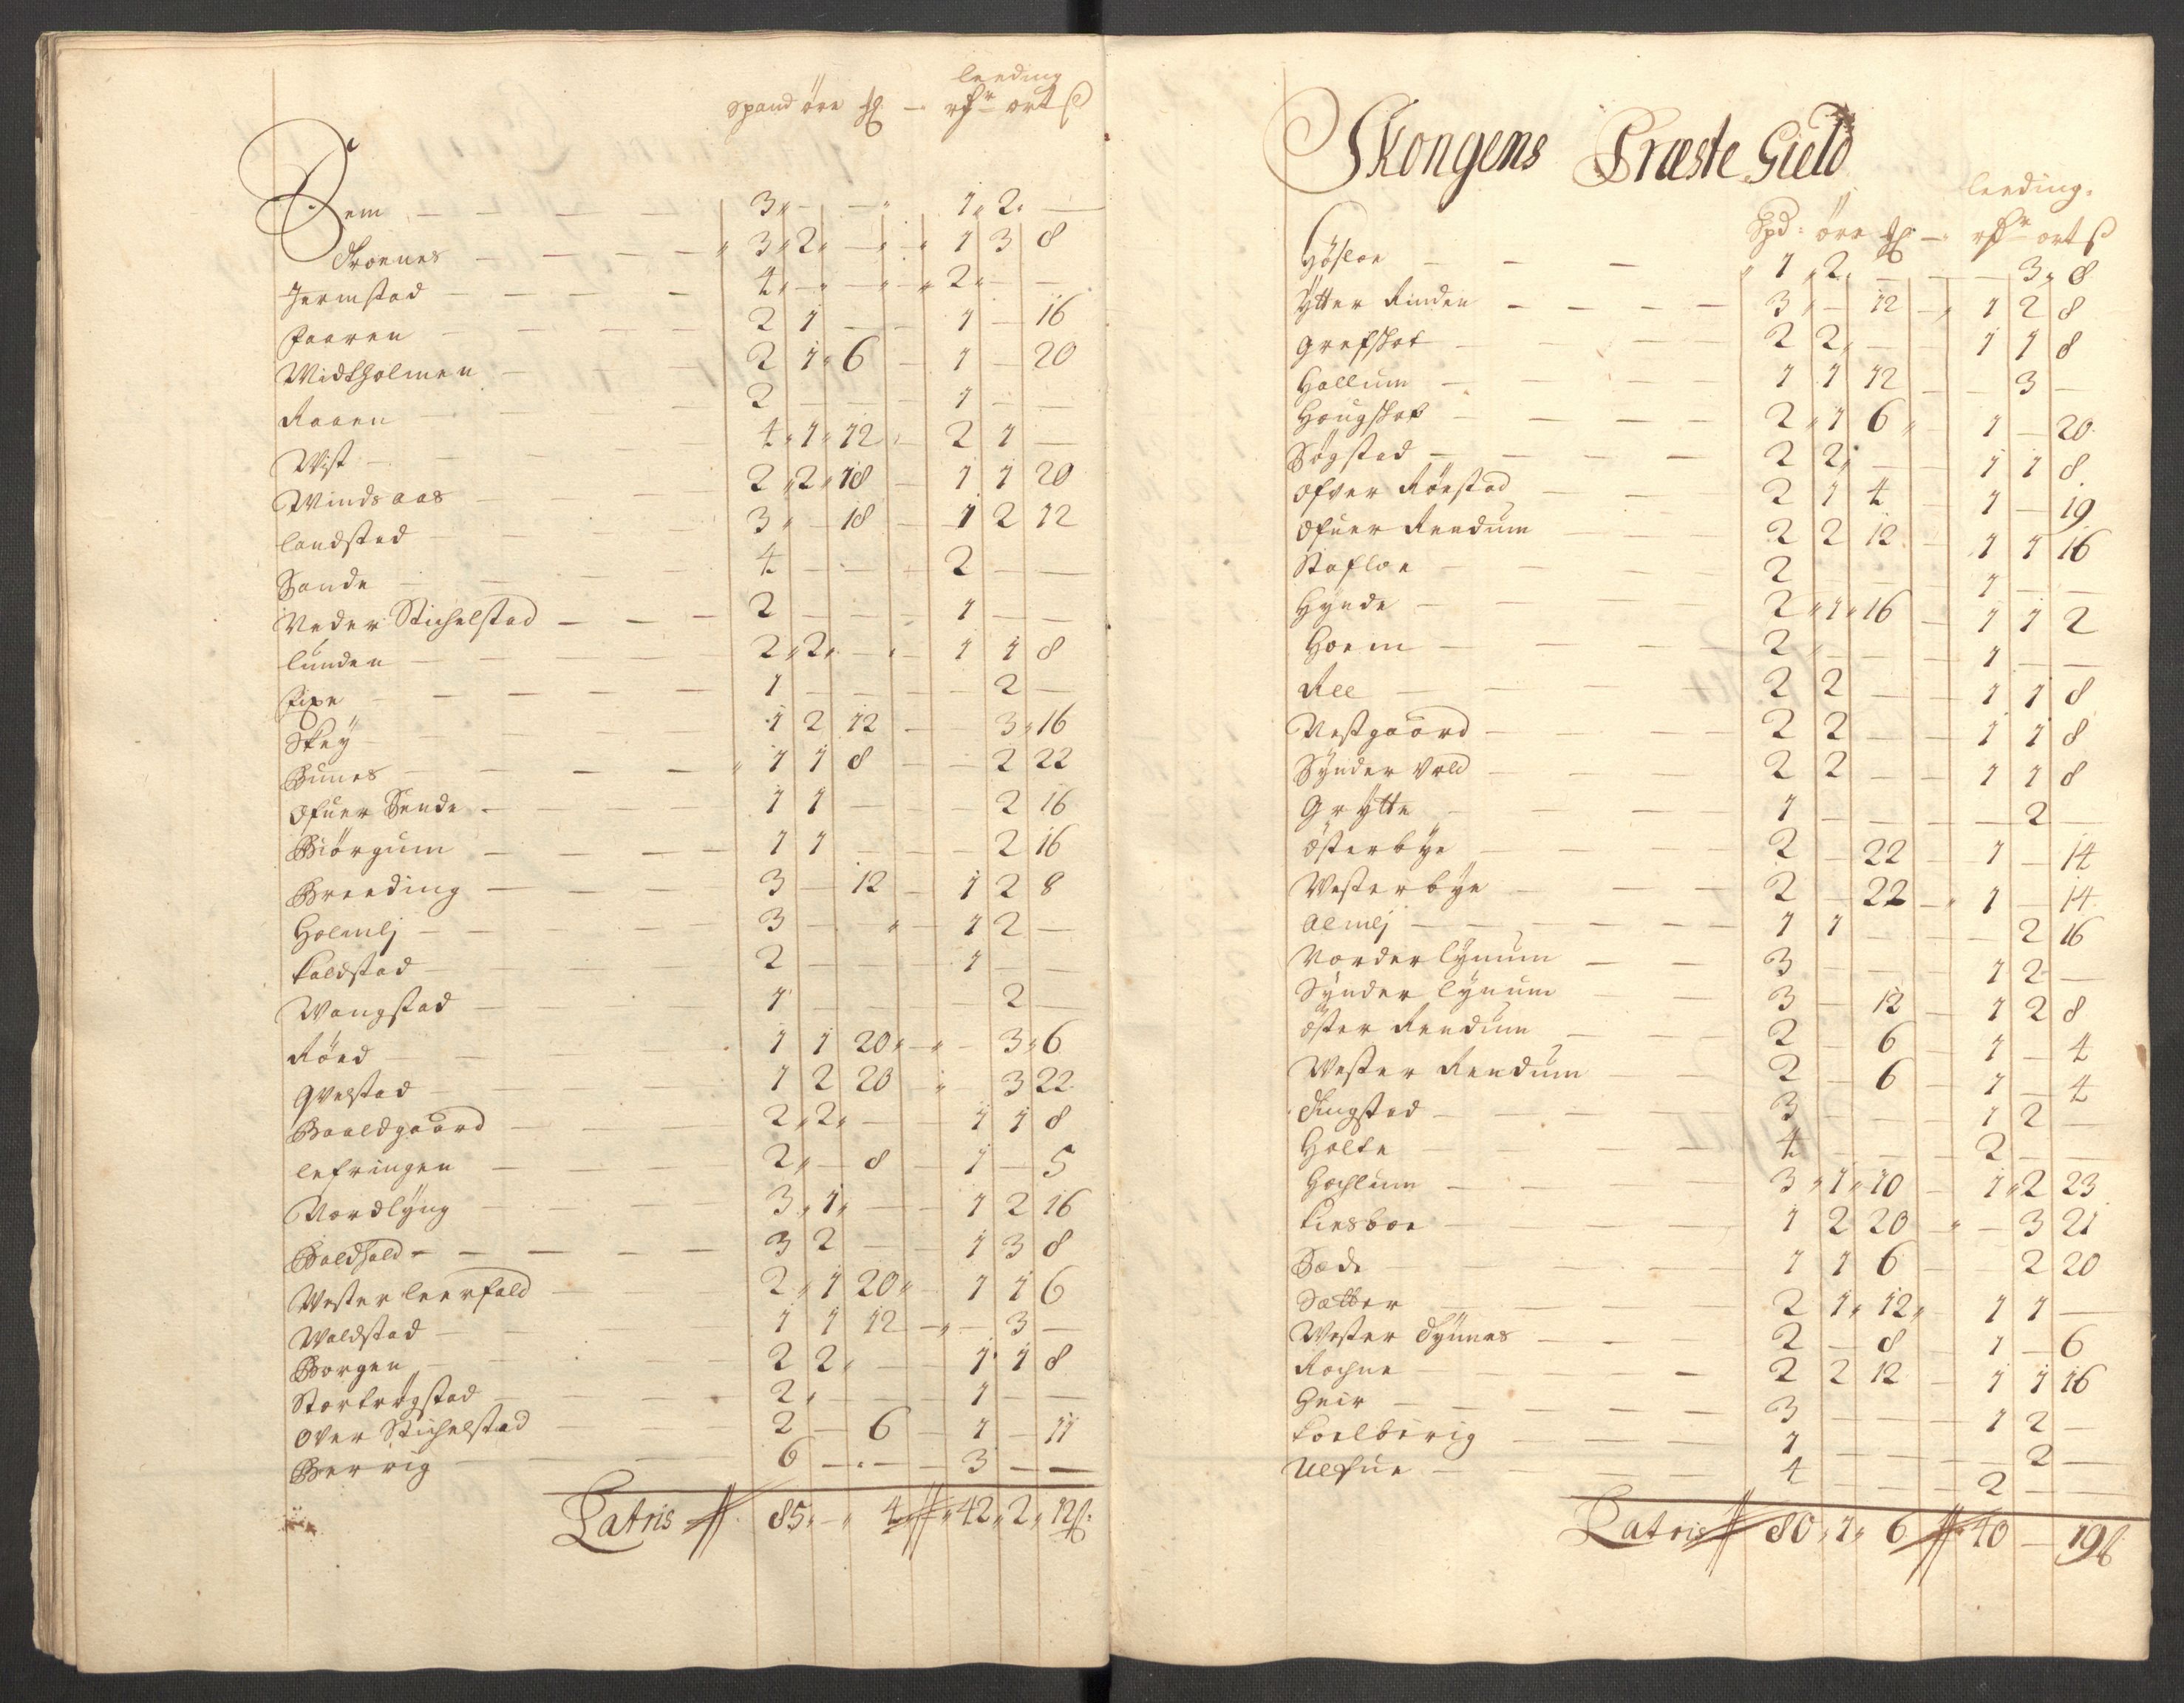 leeding
Spand öre ₰ — rdr ort ß
Dem — 3 „ — — 1 „ 2 „ —
Troenes — 3 „ 2 „ — 1 3 8
Jermstad — 4 „ — — 2 „ — —
Faaren — 2 1 — — 1 — 16
Midtholmen — 2 1 „ 6 — 1 — 20
Raaen — 2 — — 1 — —
Wist — 4 „ 1 „ 12 — 2 1 —
Windsaas — 2 „ 2 „ 18 — 1 1 20
Landstad — 3 „ — 18 — 1 2 12
Sande — 4 — — 2 — —
Neder Stichelstad — 2 — — 1 — —
Lunden — 2 „ 2 „ — 1 1 8
— 1 — — — 2 —
Skey — 1 2 12 — 3 „ 16
Bunes — 1 1 8 — — 2 22
Ofuer Sende — 1 1 — — 2 16
Biörgum — 1 1 — — — 2 16
Breeding — 3 — 12 — 1 2 8
Holmlj — 3 — — 1 2 —
Kaldstad — 2 — — 1 — —
Wangstad — 1 — — — 2 —
Röed — 1 1 20 „ — 3 „ 6
Qvelstad — 1 2 20 „ 3 22
Baaldgaard — 2 „ 2 „ — — 1 1 8
Lefringen — 2 „ — 8 — 1 — 5
Nordlÿng — 3 „ 1 „ — — 1 2 16
Baldhald — 3 2 — — 1 3 8
Wester Leerfald — 2 „ 1 20 „ 1 1 6
Waldstad — 1 1 12 — — 3 —
Borgen — 2 2 „ — — 1 1 8
Storkrogstad — 2 „ — — 1 — —
Over Stichelstad — 2 — 6 — 1 — 11
Berrig — 6 — — — 3 — —
Latris 85 „ — „ 4 „ 42 „ 2 „ 12 ß.
Skongens Præste Gield
leeding.
Spd: öre ₰ — rdr ort ß
Höfloe — 1 „ 2 „ — — 3 „ 8
Ytter Rinden — 3 „ — 12 — 1 2 8
Grefskot — 2 2 „ — — 1 1 8
Hallum — 1 1 12 — — 3 —
Haugskot — 2 „ 1 6 „ 1 — 20
Sögstad — 2 2 „ — 1 1 8
Ofver Röestad — 2 1 4 — 1 — 19
Ofuer Reedum — 2 2 12 — 1 1 16
Stafloe — 2 — — 1 — —
Hynde — 2 „ 1 „ 16 — 1 1 2
Hoem — 2 „ — — 1 — —
Ree — 2 2 — — 1 1 8
Vestgaard — 2 2 — — 1 1 8
Synder Vold — 2 2 — — 1 1 8
Grytte — 1 — — — 2 —
Österbye — 2 — 22 — 1 — 14
Westerbye — 2 — 22 — 1 — 14
Almlj — 1 1 — — 2 16
Norder Lynum — 3 — — 1 2 —
Synder Lynum — 3 — 12 — 1 2 8
Öster Reedum — 2 — 6 — 1 — 4
Wester Reedum — 2 — 6 — 1 — 4
Tingstad — 3 — — — 1 2 —
Holte — 4 — — — 2 — —
Hachlum — 3 „ 1 „ 10 — 1 „ 2 23
Kirsboe — 1 2 20 „ — 3 21
Bade — 1 1 6 — — 2 20
Satter — 2 1 „ 12 „ 1 1 —
Wester Dynnes — 2 — 8 — 1 — 6
Rochne — 2 2 12 — 1 1 16
Heir — 3 — — — 1 2 —
Koelberig — 1 — — — 2 —
Ulfue — 4 — — — 2 — —
Latris 80 „ 1 „ 6 40 — 19 ß